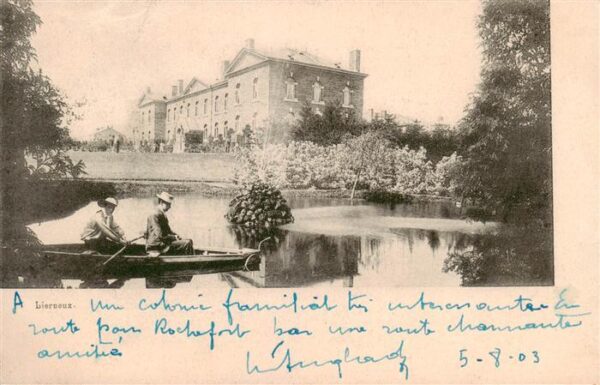 Lierneux.
A une colonie familial très intéressante En
route pour Rochefort par une route charmante
amitié
5-8-03